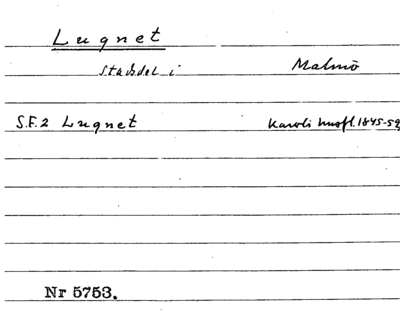 Lugnet
stadsdel i Malmö
S.F.2 Lugnet Karoli husfl. 1845-59
Nr 5753.